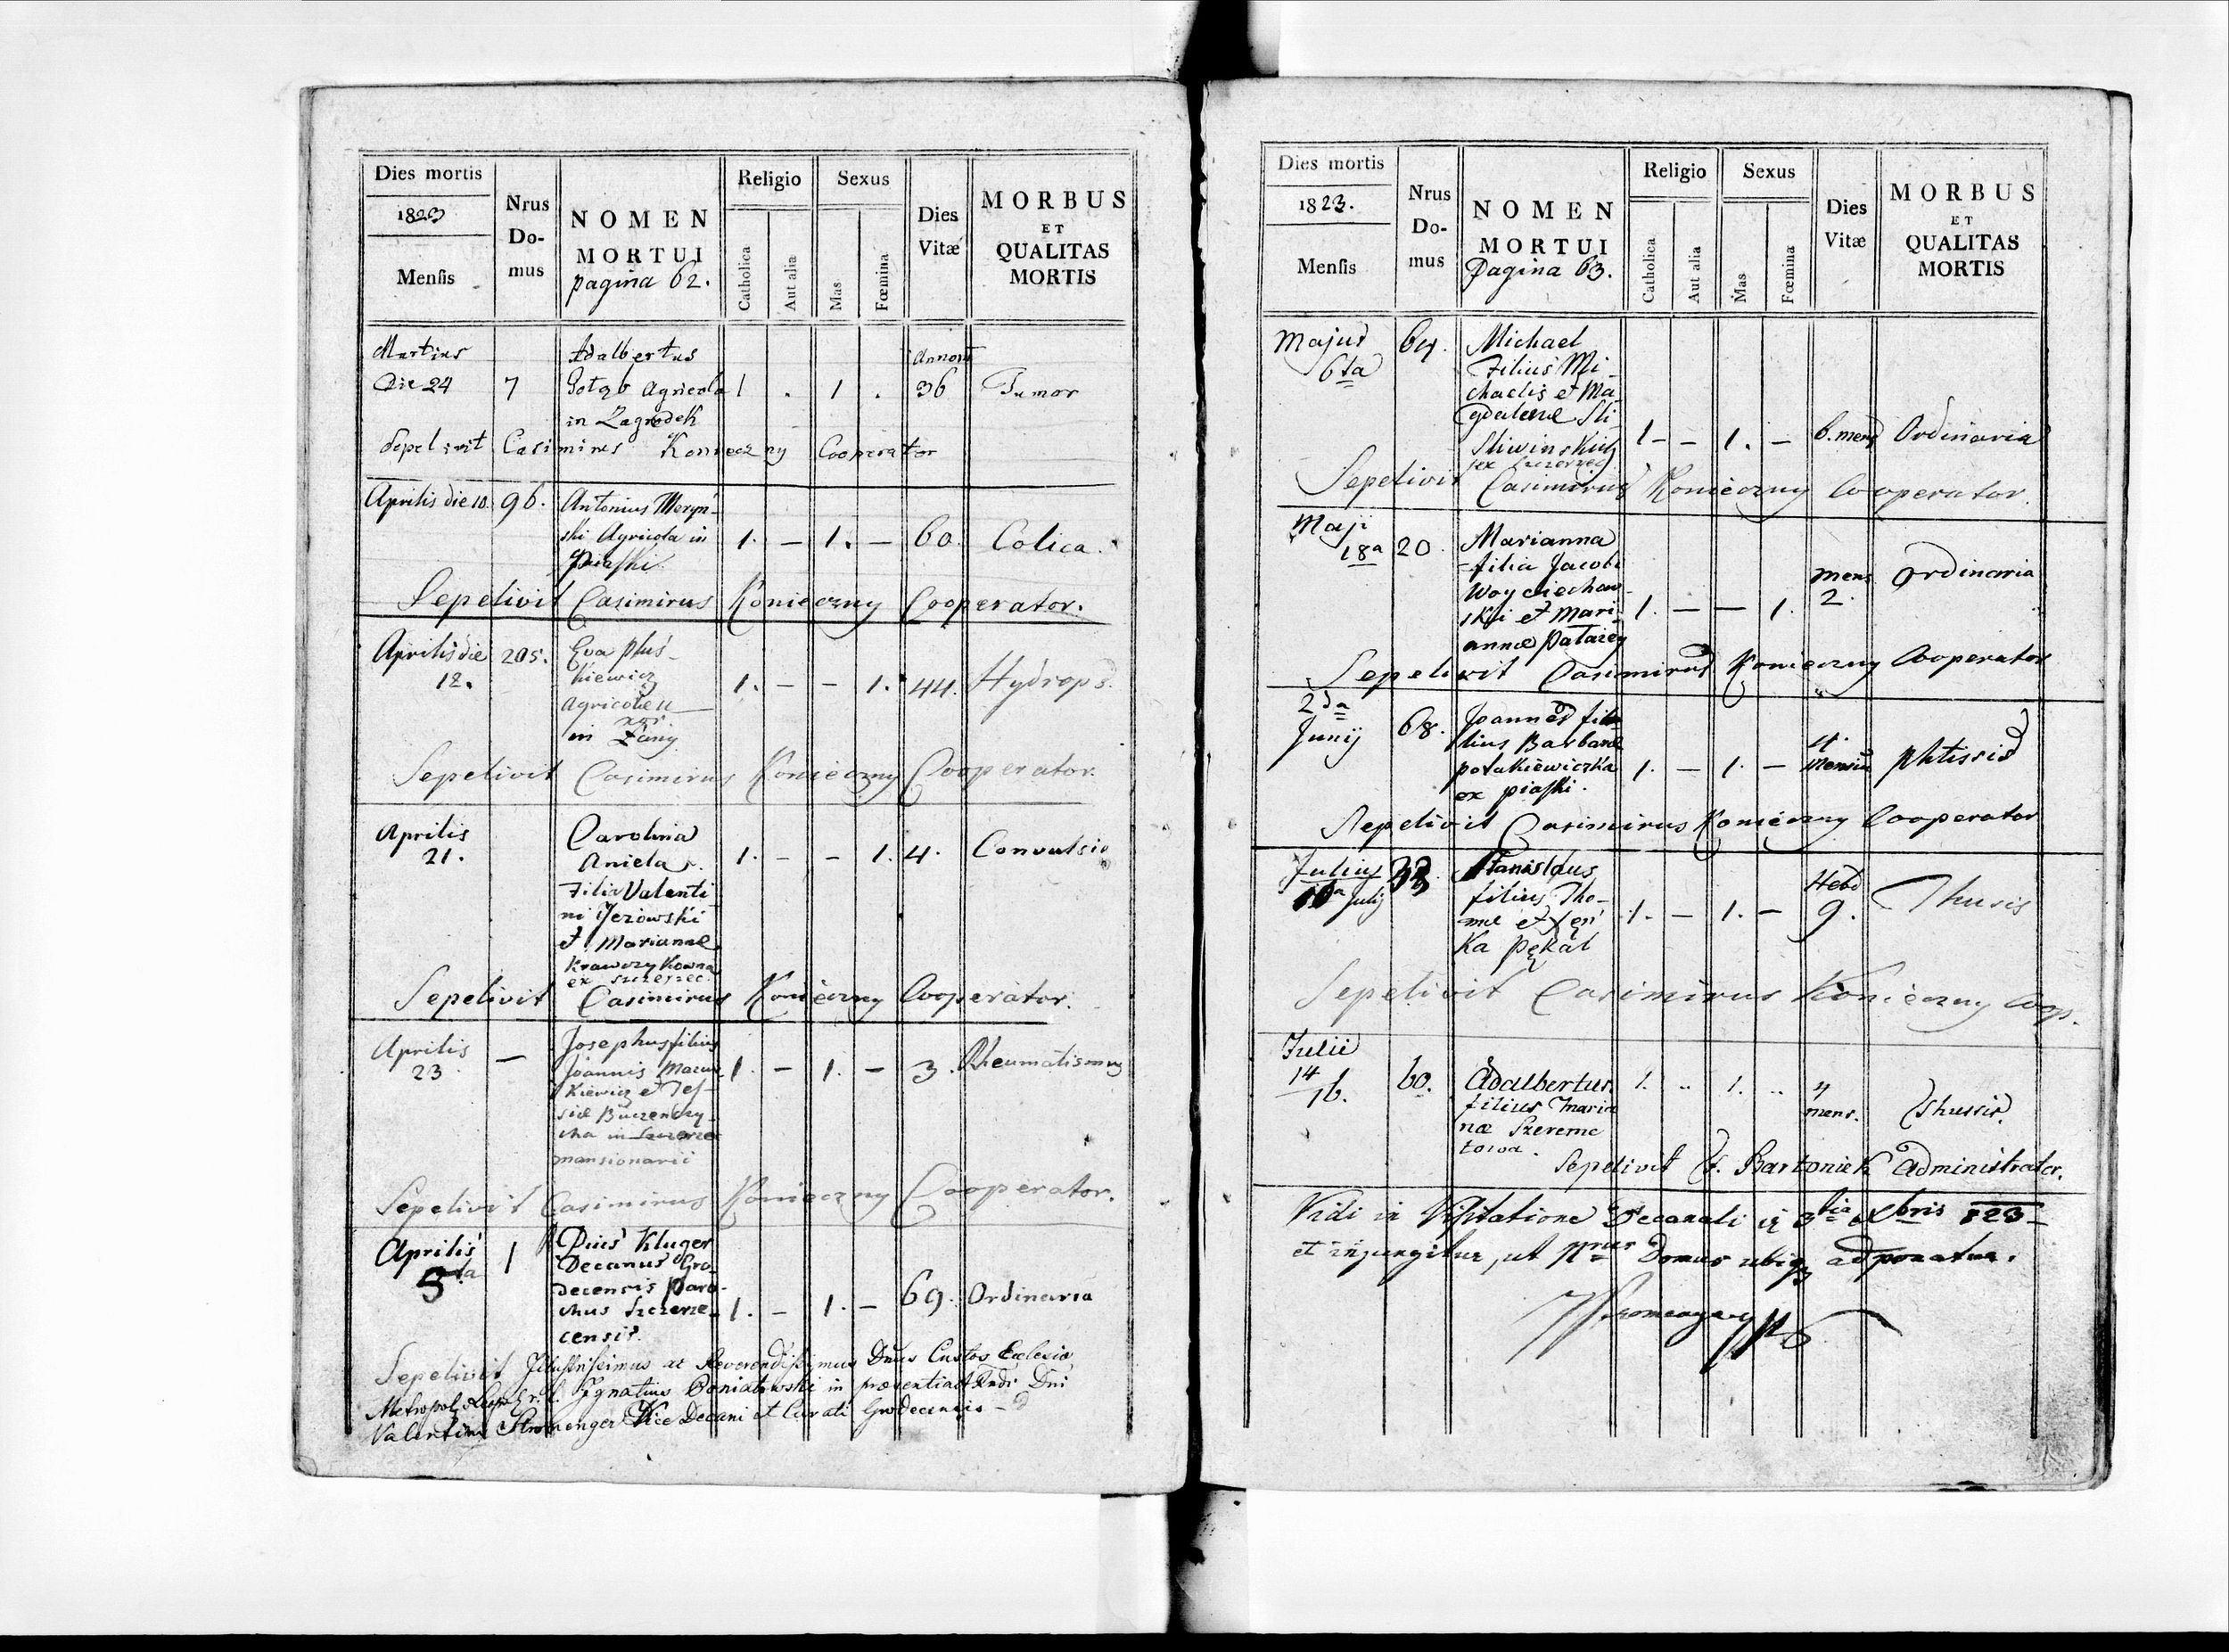 Dies mortis
1823
Mensis
Nrus
Do-
mus
NOMEN
MORTUI
pagina 62.
Religio
Catholica
Aut alia
Sexus
Mas
Fœmina
Dies
Vitæ
MORBUS
ET
QUALITAS
MORTIS
Martius
Die 24
7
Adalbertus
Gołąb Agricola
in Zagrodek
1 . 1 .
Annorũ
36
Tumor
Sepelivit Casimirus Konieczny Cooperator
Aprilis die 10.
96.
Antonius Meryń-
ski Agricola in
Piaski
1. — 1. —
60.
Colica.
Sepelivit Casimirus Konieczny Cooperator.
Aprilis die
12.
205.
Eva Pluś-
kiewicz
Agricolæ u-
xor
in Łany
1. — — 1.
44.
Hydrops.
Sepelivit Casimirus Konieczny Cooperator.
Aprilis
21.
Carolina
Aniela
Filia Valenti
ni Jezowski
et Mariannæ
Krawczykowna
ex Szczerzec.
1. - - 1.
4.
Convulsio
Sepelivit Casimirus Konieczny Cooperator.
Aprilis
23
—
Josephus filius
Joannis
kiewicz et Tes-
siæ
cha in Szczerzec
mansionarii
1. - 1. -
3.
Rheumatismus
Sepelivit Casimirus Konieczny Cooperator.
Aprilis
5ta
1
Pius Kluger
Decanus Gro-
decensis Paro-
chus Szczerze-
censis.
1. - 1. -
69.
Ordinaria
Sepelivit Illustrissimus ac Reverendissimus Dnus Custos Ecclesiæ
Metropol: Leopol. r. l. Ignatius Poniatowski in præsentia Rndi Dni
Valentini Stronenger Vice Decani et Curati Grodecensis
Dies mortis
1823.
Mensis
Nrus
Do-
mus
NOMEN
MORTUI
Pagina 63.
Religio
Catholica
Aut alia
Sexus
Mas
Fœmina
Dies
Vitæ
MORBUS
ET
QUALITAS
MORTIS
Majus
6ta
64.
Michael
Filius Mi-
chaelis et Ma-
gdalenæ Sli-
Sliwinskich
ex Szczerzec
1 - - 1. -
6. mens
Ordinaria
Sepelivit Casimirus Konieczny Cooperator.
Maji
18a
20.
Marianna
filia Jacobi
Woyciechow-
ski et Mari-
annæ
1. — — 1.
mens
2.
Ordinaria
Sepelivit Casimirus Konieczny Cooperator
2da
Junij
68.
Joannes fi-
lius Barbaræ
polakiewiczka
ex piaski.
1. - 1. -
4.
Mensiũ
phtissis
Sepelivit Casimirus Konieczny Cooperator
Julius
Julij
33
Stanislaus
filius Tho-
mæ et
ka Pękal
1. - 1. -
Hebd
9.
Thusis
Sepelivit Casimirus Konieczny Coop.
Julii
14
16.
60.
Adalbertus
filius Maria
næ Szereme
towa.
1. .. 1. ..
4
mens.
Thussis
Sepelivit F. Bartoniek Administrator.
Vidi in Visitatione Decanali 3tia Xbris 823
et injungitur, ut Nrus Domus ubiq adponatur.